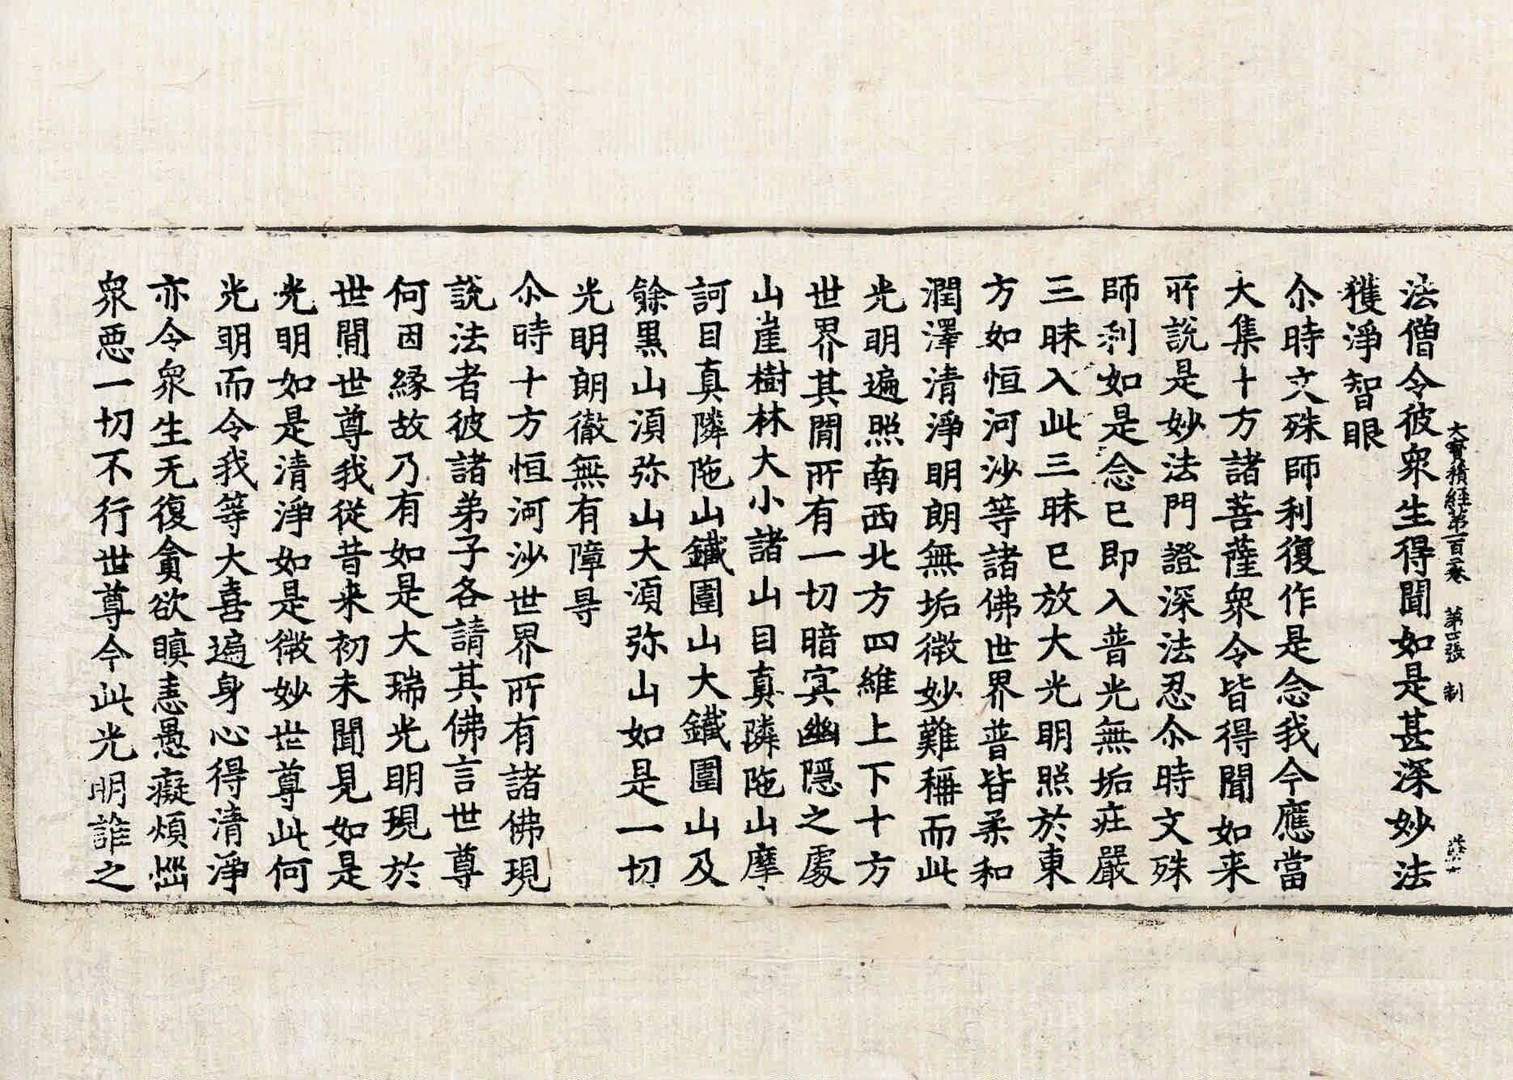 大寶積經第一百二卷 第四張 制
法僧令彼衆生得聞如是甚深妙法
獲淨智眼
尒時文殊師利復作是念我今應當
大集十方諸菩薩衆令皆得聞如来
所說是妙法門證深法忍尒時文殊
師利如是念已即入普光無垢莊嚴
三昧入此三昧已放大光明照於東
方如恒河沙等諸佛世界普皆柔和
潤澤清淨明朗無垢微妙難稱而此
光明遍照南西北方四維上下十方
世界其閒所有一切暗㝠幽隱之處
山崖樹林大小諸山目真隣陁山摩
訶目真隣陁山鐵圍山大鐵圍山及
餘黒山湏弥山大湏弥山如是一切
光明朗徹無有障㝵
尒時十方恒河沙世界所有諸佛現
說法者彼諸弟子各請其佛言世尊
何因縁故乃有如是大瑞光明現於
世閒世尊我從昔来初未聞見如是
光明如是清淨如是微妙世尊此何
光明而令我等大喜遍身心得清淨
亦令衆生无復貪欲瞋恚愚癡煩惱
衆惡一切不行世尊今此光明誰之